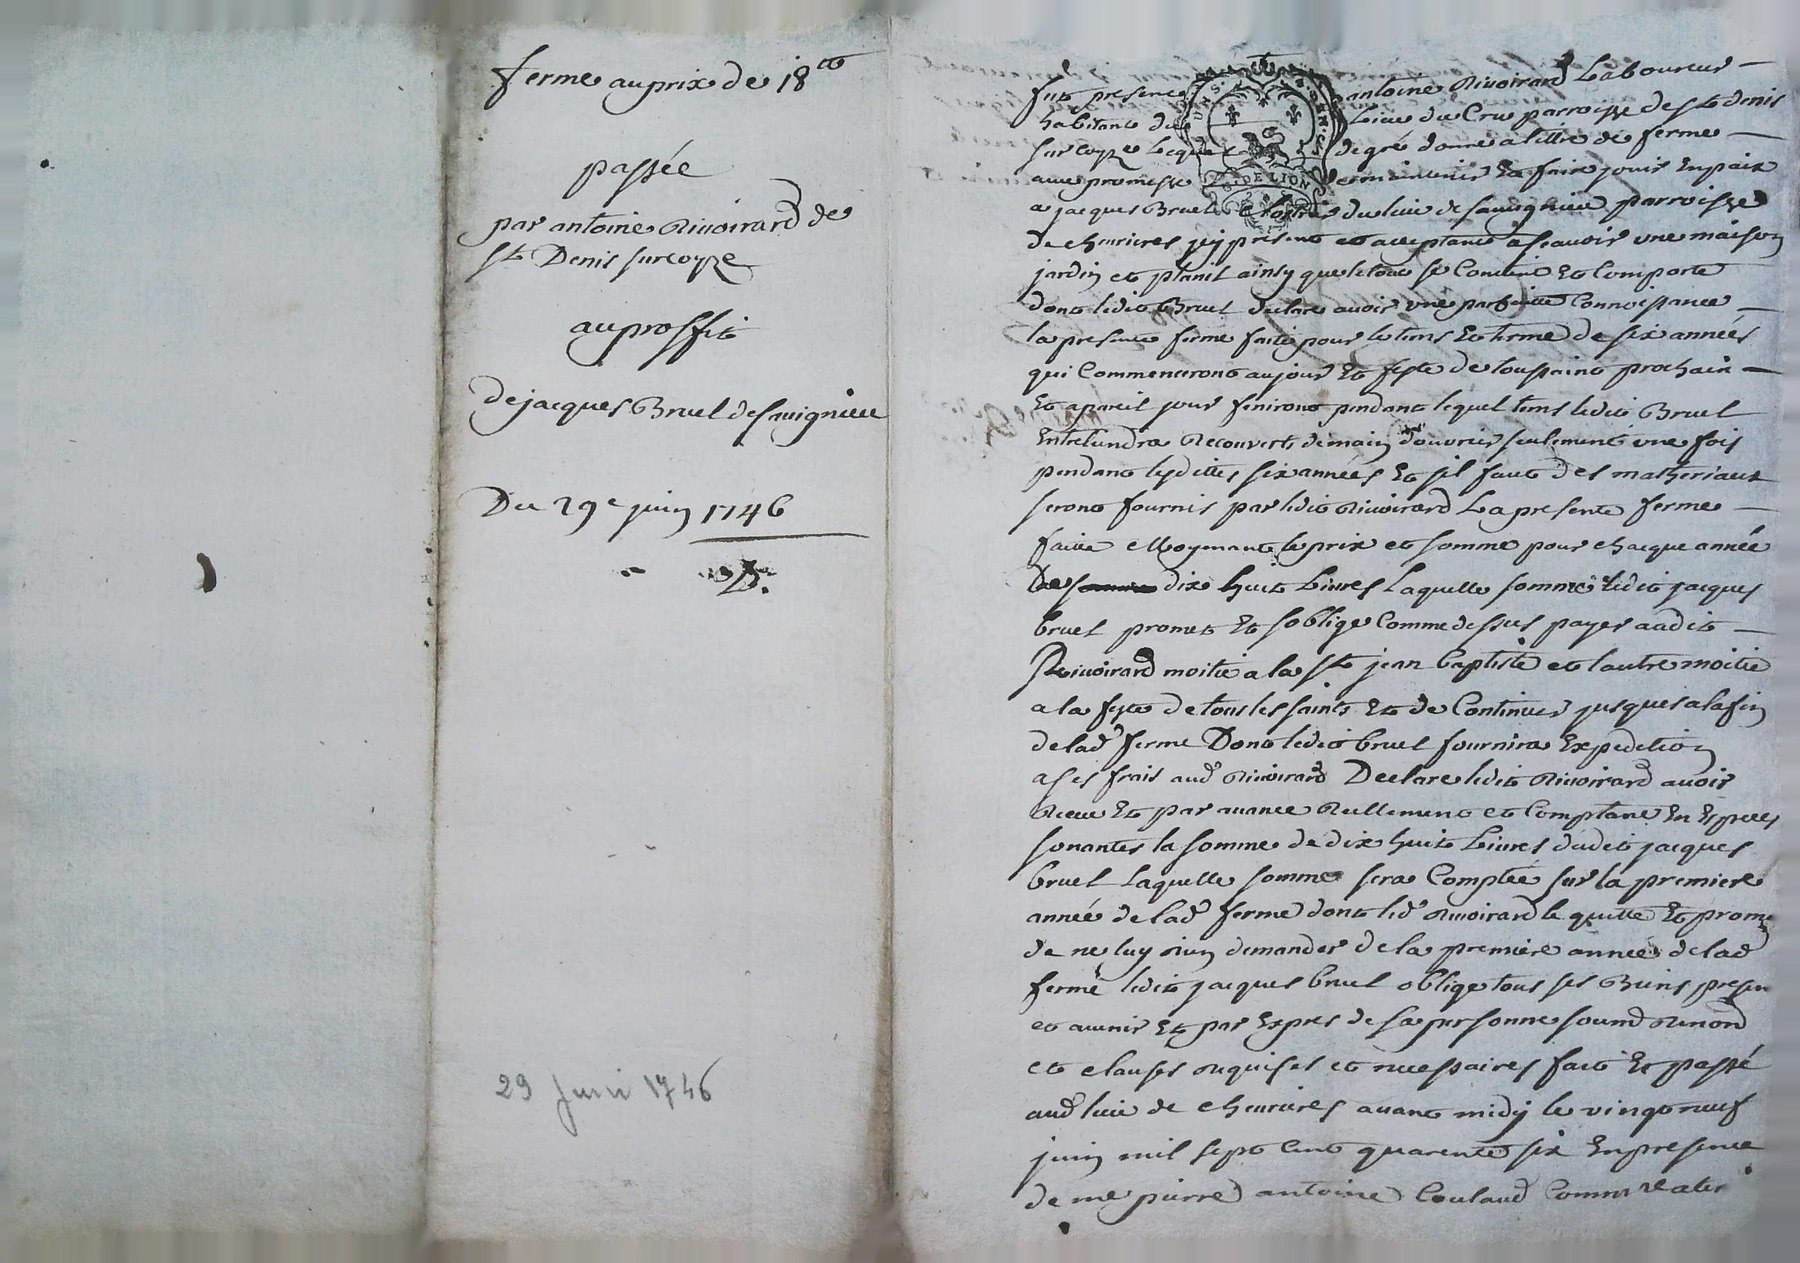 ferme au prix de 18 tt
passée
par antoine Rivoirard de
St Denis sur coyze
au proffit
de jacques Bruel de Savignieu
Du 29e juin 1746
29 Juin 1746
fut present antoine Rivoirard Laboureur
habitant du Lieu du Cru parroisse de St denis
sur coyze lequel de gré donne a tiltre de ferme
avec promesse de maintenir Et faire jouir En paix
a jacques Bruel du lieu de Savignieu parroisse
de chevrieres icy present et acceptant ascavoir une maison
jardin et plani ainsy que le tout se Contient Et Comporte
dont ledit Bruel declare avoir une parfaitte Connoissance
la presente ferme faite pour le tems Et terme de six années
qui Commenceront au jour Et feste de toussaint prochain
Et a pareil jour finiront pendant lequel tems ledit Bruel
Entretiendra Recouvert de main d'ouvrier seulement une fois
pendant lesdittes six années Et sil faut des matheriaux
seront fournis par ledit Rivoirard La presente ferme
faitte Moyenant le prix et somme pour chacque année
de somme dix huit Livres Laquelle somme ledit jacques
bruel promet Et soblige Comme dessus payer audit
Rivoirard moitié a la St jean baptiste et lautre moitié
a la feste de tous les saints Et de Continuer jusques a la fin
de lad ferme Dont ledit bruel fournira Expedition
a ses frais aud Rivoirard Declare ledit Rivoirard avoir
Receu Et par avance Reellement et Comptant En Especes
sonantes la somme de dix huit Livres dudit jacques
bruel Laquelle somme sera Comptée sur la premiere
année de lad ferme dont led Rivoirard le quitte Et prome
de ne luy rien demander de la premiere année de lad
ferme ledit jacques bruel oblige tous ses Biens presen
et avenir Et par Expres de sa personne soumd Renond
et clauses requises et necessaires fait Et passé
aud lieu de chevrieres avant midy le vingt neuf
juin mil sept cent quarente six En presence
de me pierre antoine Coulaud